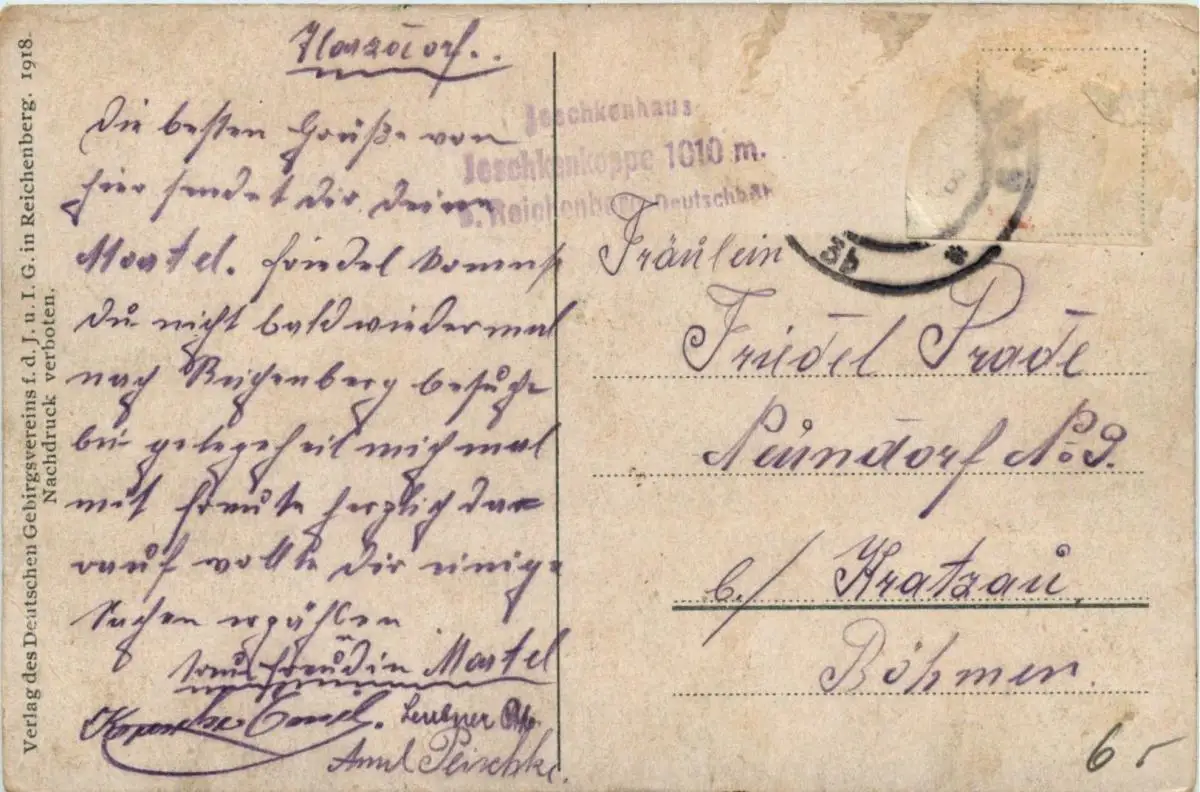 Verlag des Deutschen Gebirgsvereins f. d. J. u. I. G. in Reichenberg. 1918.
Nachdruck verboten.
Harzdorf..
Die besten Grüße von
hier sendet dir deine
Martel. Friedel kommst
du nicht bald wieder mal
nach Reichenberg besuche
bei gelegeheit mich mal
mit freute herzlich dar
rauf wollte dir einige
Sachen erzählen
Freudin Martel
Leubner
Pleischke.
Jeschkenhaus
Jeschkenkoppe 1010 m.
b. Reichenberg Deutschböh
3b *
Fräulein
Friedel Prade
Neundorf No 9.
b./ Kratzau
Böhmen.
6